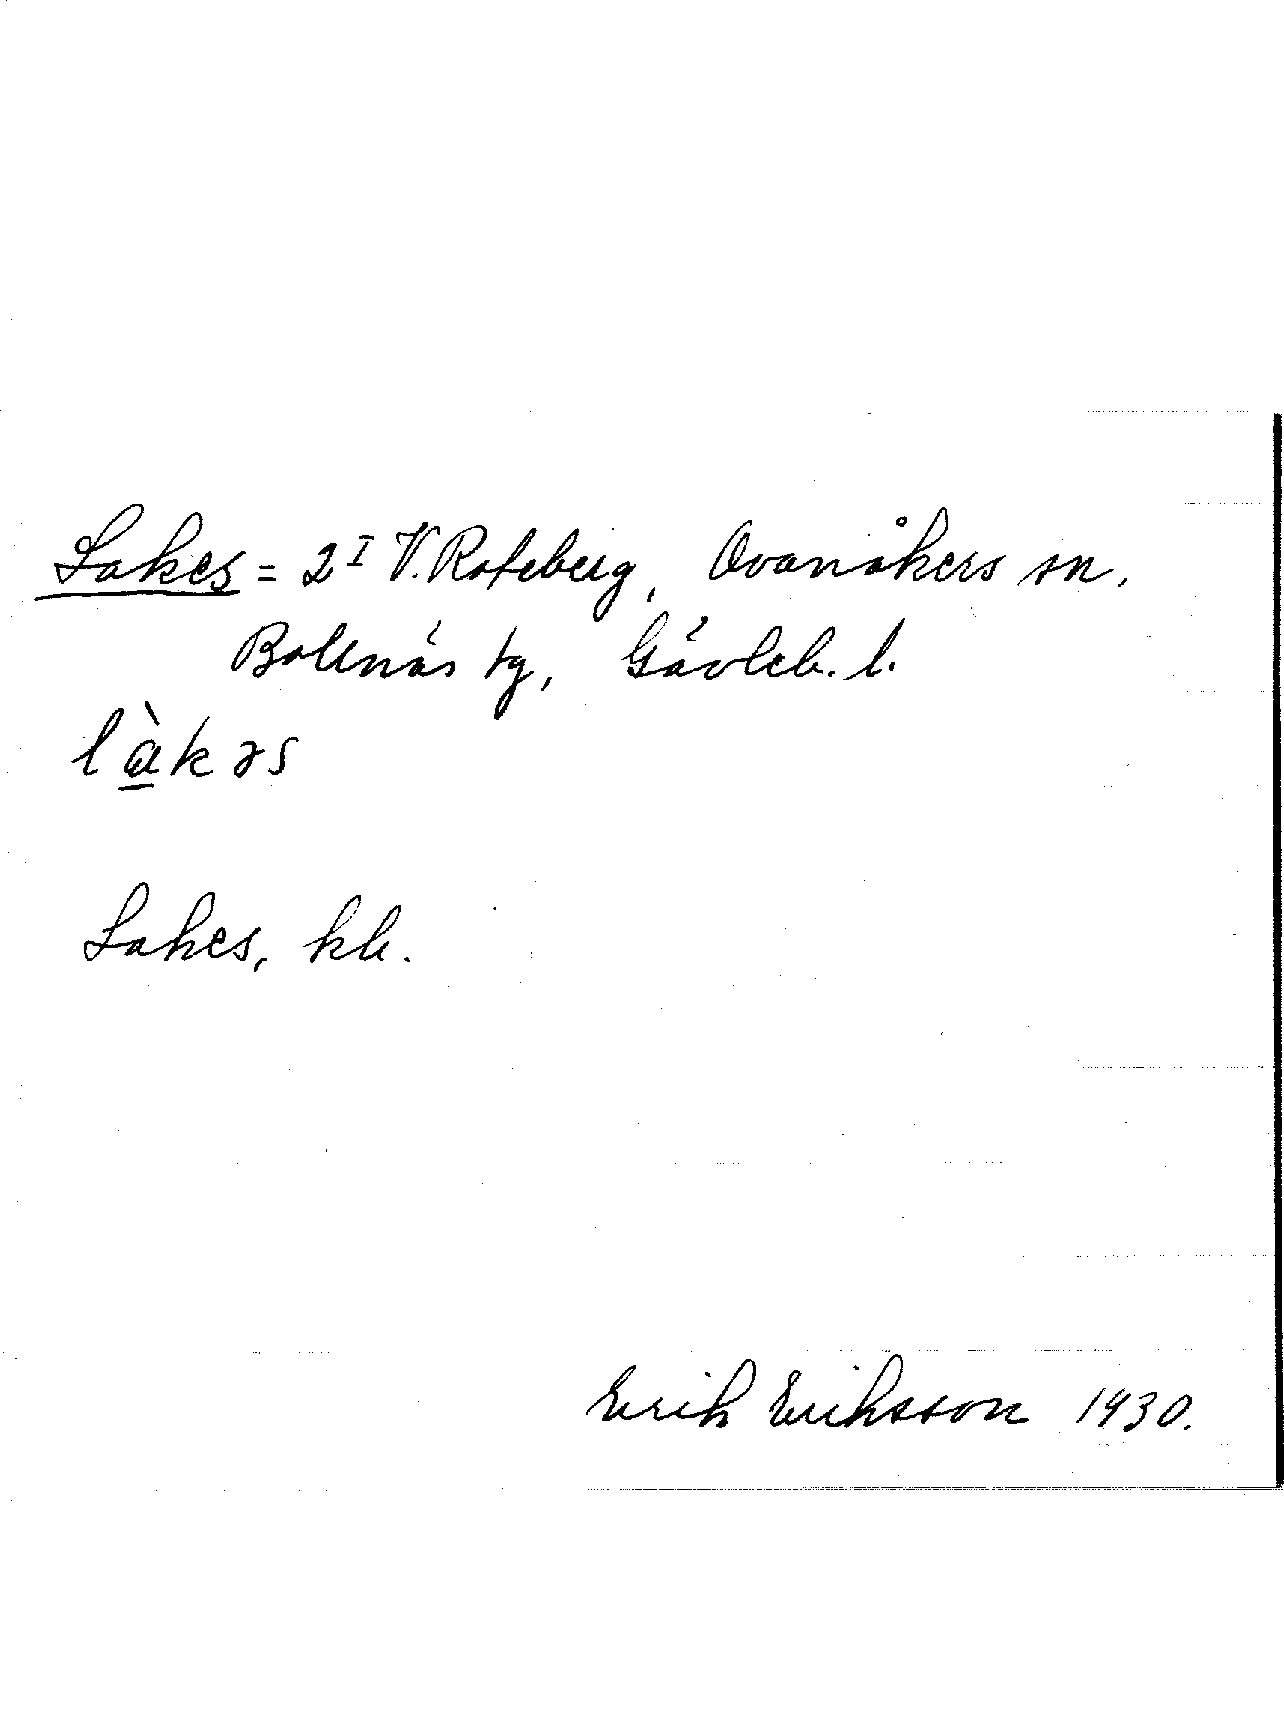 Lakes = 2ᴵ V. Roteberg, Ovanåkers sn,
Bollnäs tg, Gävleb. l.
l à̱ k ə s
Lakes, kb.
Erik Eriksson 1930.